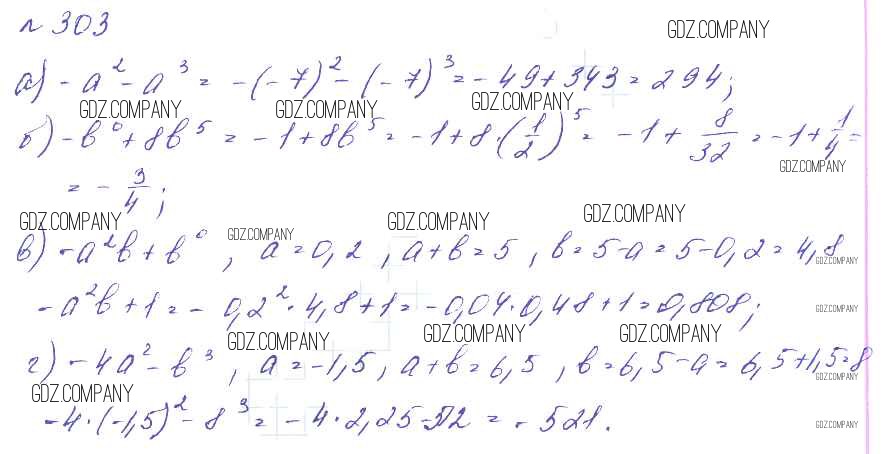 № 303
GDZ.COMPANY
а) -a² - a³ = -(-7)² - (-7)³ = -49 + 343 = 294;
GDZ.COMPANY GDZ.COMPANY GDZ.COMPANY
б) -b⁰ + 8b⁵ = -1 + 8b⁵ = -1 + 8·(1/2)⁵ = -1 + 8/32 = -1 + 1/4 =
GDZ.COMPANY
= -3/4;
GDZ.COMPANY GDZ.COMPANY GDZ.COMPANY
в) -a²b + b⁰, a = 0,2, a + b = 5, b = 5 - a = 5 - 0,2 = 4,8
GDZ.COMPANY GDZ.COMPANY
-a²b + 1 = -0,2²·4,8 + 1 = -0,04·0,48 + 1 = 0,808;
GDZ.COMPANY
GDZ.COMPANY GDZ.COMPANY GDZ.COMPANY
г) -4a² - b³, a = -1,5, a + b = 6,5, b = 6,5 - a = 6,5 + 1,5 = 8
GDZ.COMPANY GDZ.COMPANY
-4·(-1,5)² - 8³ = -4·2,25 - 512 = -521.
GDZ.COMPANY